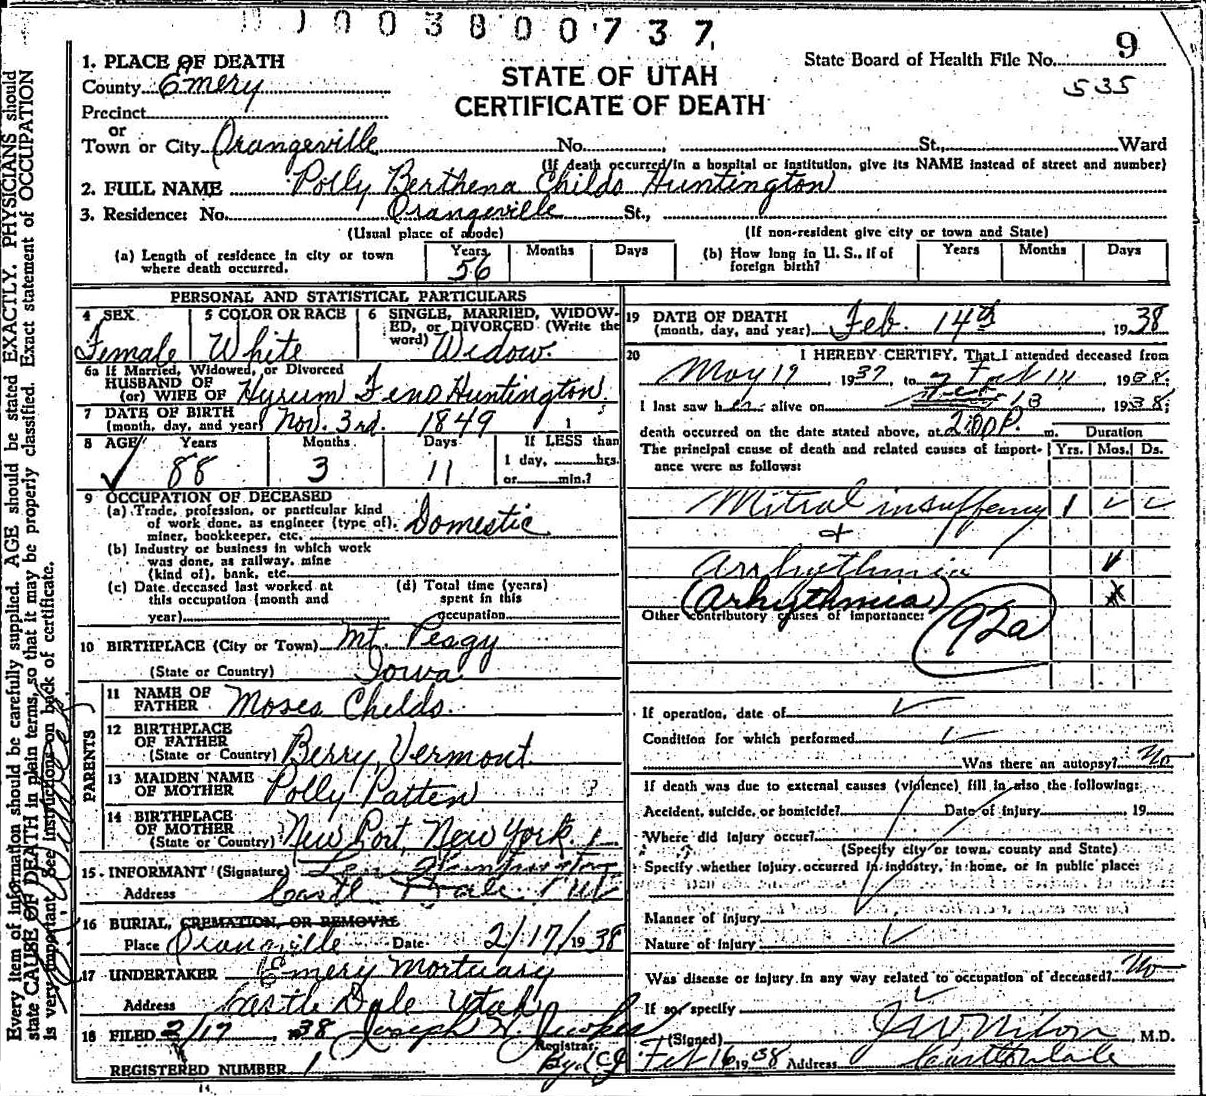 0 0 3 8 0 0 7 3 7
9
State Board of Health File No.
535
1. PLACE OF DEATH
STATE OF UTAH
CERTIFICATE OF DEATH
County Emery
Precinct
or
Town or City Orangeville No. St., Ward
(If death occurred in a hospital or institution, give its NAME instead of street and number)
2. FULL NAME Polly Berthena Childs Huntington
3. Residence: No. Orangeville St.,
(Usual place of abode) (If non-resident give city or town and State)
(a) Length of residence in city or town where death occurred. Years 56 Months Days
(b) How long in U. S., if of foreign birth? Years Months Days
PERSONAL AND STATISTICAL PARTICULARS
4 SEX Female
5 COLOR OR RACE White
6 SINGLE, MARRIED, WIDOWED, or DIVORCED (Write the word) Widow.
6a If Married, Widowed, or Divorced
HUSBAND OF
(or) WIFE OF Hyrum Huntington
7 DATE OF BIRTH
(month, day, and year) Nov. 3rd. 1849
8 AGE Years 88 Months 3 Days 11 If LESS than 1 day, hrs. or min.?
9 OCCUPATION OF DECEASED
(a) Trade, profession, or particular kind of work done, as engineer (type of), miner, bookkeeper, etc. Domestic
(b) Industry or business in which work was done, as railway, mine (kind of), bank, etc.
(c) Date deceased last worked at this occupation (month and year)
(d) Total time (years) spent in this occupation
10 BIRTHPLACE (City or Town) Mt. Pesgy
(State or Country) Iowa
PARENTS
11 NAME OF FATHER Moses Childs.
12 BIRTHPLACE OF FATHER
(State or Country) Berry, Vermont.
13 MAIDEN NAME OF MOTHER Polly Patten
14 BIRTHPLACE OF MOTHER
(State or Country) New Port, New York.
15. INFORMANT (Signature) Huntington
Address Castle Dale, Ut
16 BURIAL, CREMATION, OR REMOVAL
Place Orangville Date 2/17/1938
17 UNDERTAKER Emery Mortuary
Address Castle Dale Utah
18 FILED 2/17, 1938 Joseph
Registrar.
REGISTERED NUMBER 1
19 DATE OF DEATH
(month, day, and year) Feb. 14th 1938
20 I HEREBY CERTIFY, That I attended deceased from
May 19 1937, to 1938;
I last saw her alive on Feb 13 1938;
death occurred on the date stated above, at 2:00 P. m. Duration
The principal cause of death and related causes of importance were as follows: Yrs. Mos. Ds.
Mitral insuffiency 1
+
Arrhythmia
(Arhythmia)
Other contributory causes of importance:
92a
If operation, date of
Condition for which performed
Was there an autopsy? No
If death was due to external causes (violence) fill in also the following:
Accident, suicide, or homicide? Date of injury 19
Where did injury occur?
(Specify city or town, county and State)
Specify whether injury occurred in industry, in home, or in public place:
Manner of injury
Nature of injury
Was disease or injury in any way related to occupation of deceased? No
If so, specify
(Signed) M.D.
Feb 16 1938 Address Castle Dale
Every item of information should be carefully supplied. AGE should be stated EXACTLY. PHYSICIANS should
state CAUSE OF DEATH in plain terms, so that it may be properly classified. Exact statement of OCCUPATION
is very important. See instructions on back of certificate.